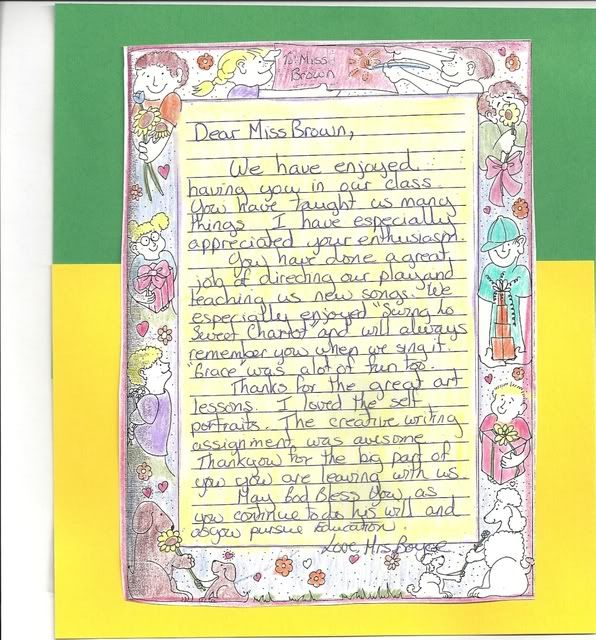 To: Miss
Brown
Dear Miss Brown,
We have enjoyed
having you in our class.
You have taught us many
things. I have especially
appreciated your enthusiasm.
You have done a great
job of directing our play and
teaching us new songs. We
especially enjoyed "Swing lo
Sweet Chariot" and will always
remember you when we sing it.
"Grace" was a lot of fun too.
Thanks for the great art
lessons. I loved the self
portraits. The creative writing
assignment was awesome.
Thankyou for the big part of
you you are leaving with us.
May God Bless You, as
you continue to do his will and
as you pursue Education.
Love, Mrs. Boyce